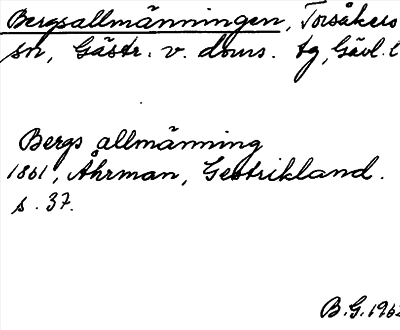 Bergsallmänningen, Torsåkers
sn, Gästr. v. doms. tg, Gävl. l
Bergs allmänning
1861, Åhrman, Gestrikland.
s. 37.
B.G. 1962